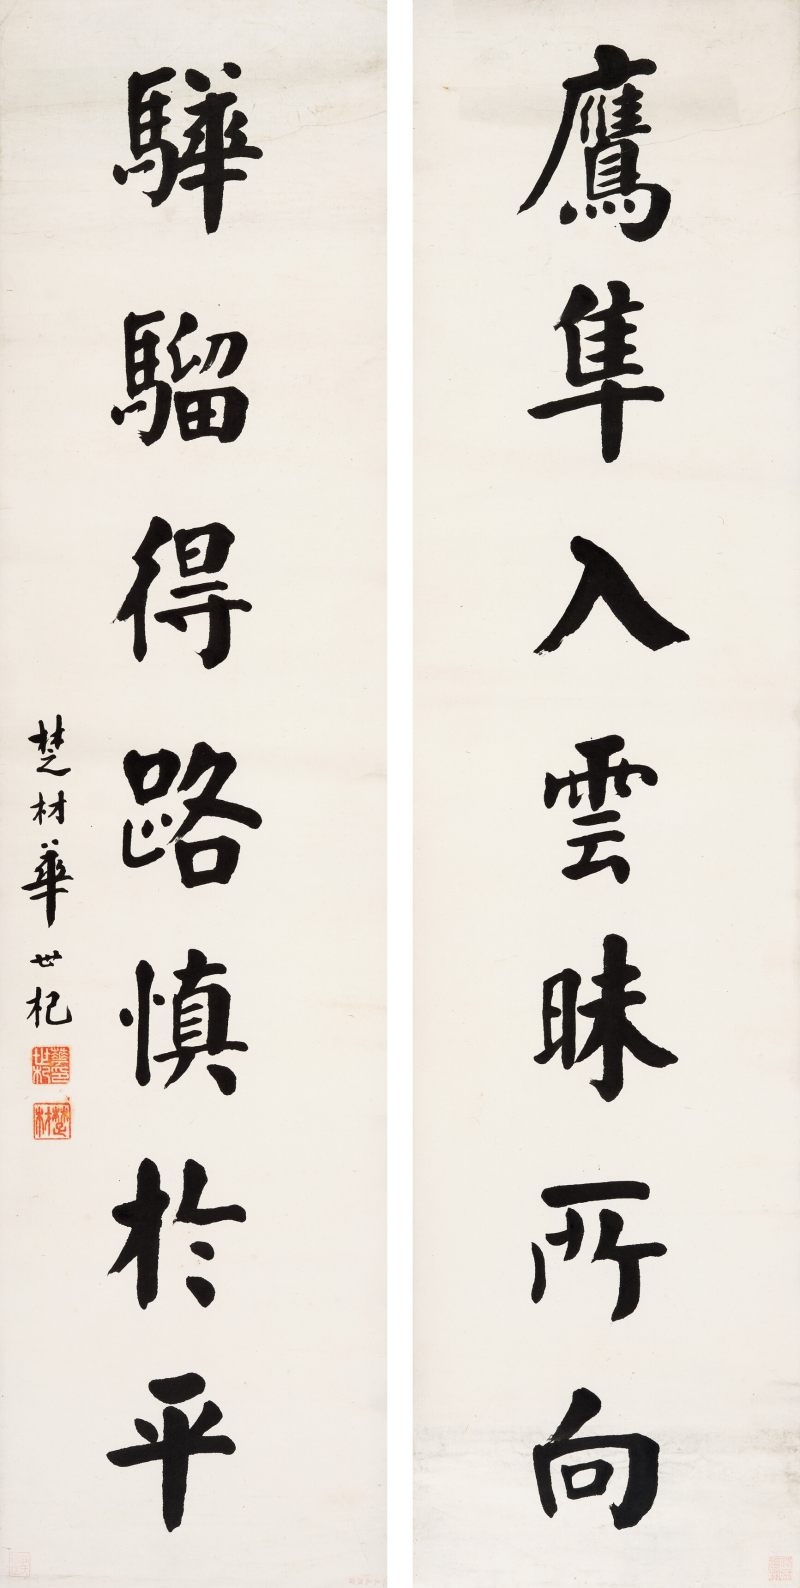 鷹隼入雲昧所向
驊騮得路慎於平
楚材華世杞
華世杞印
楚材